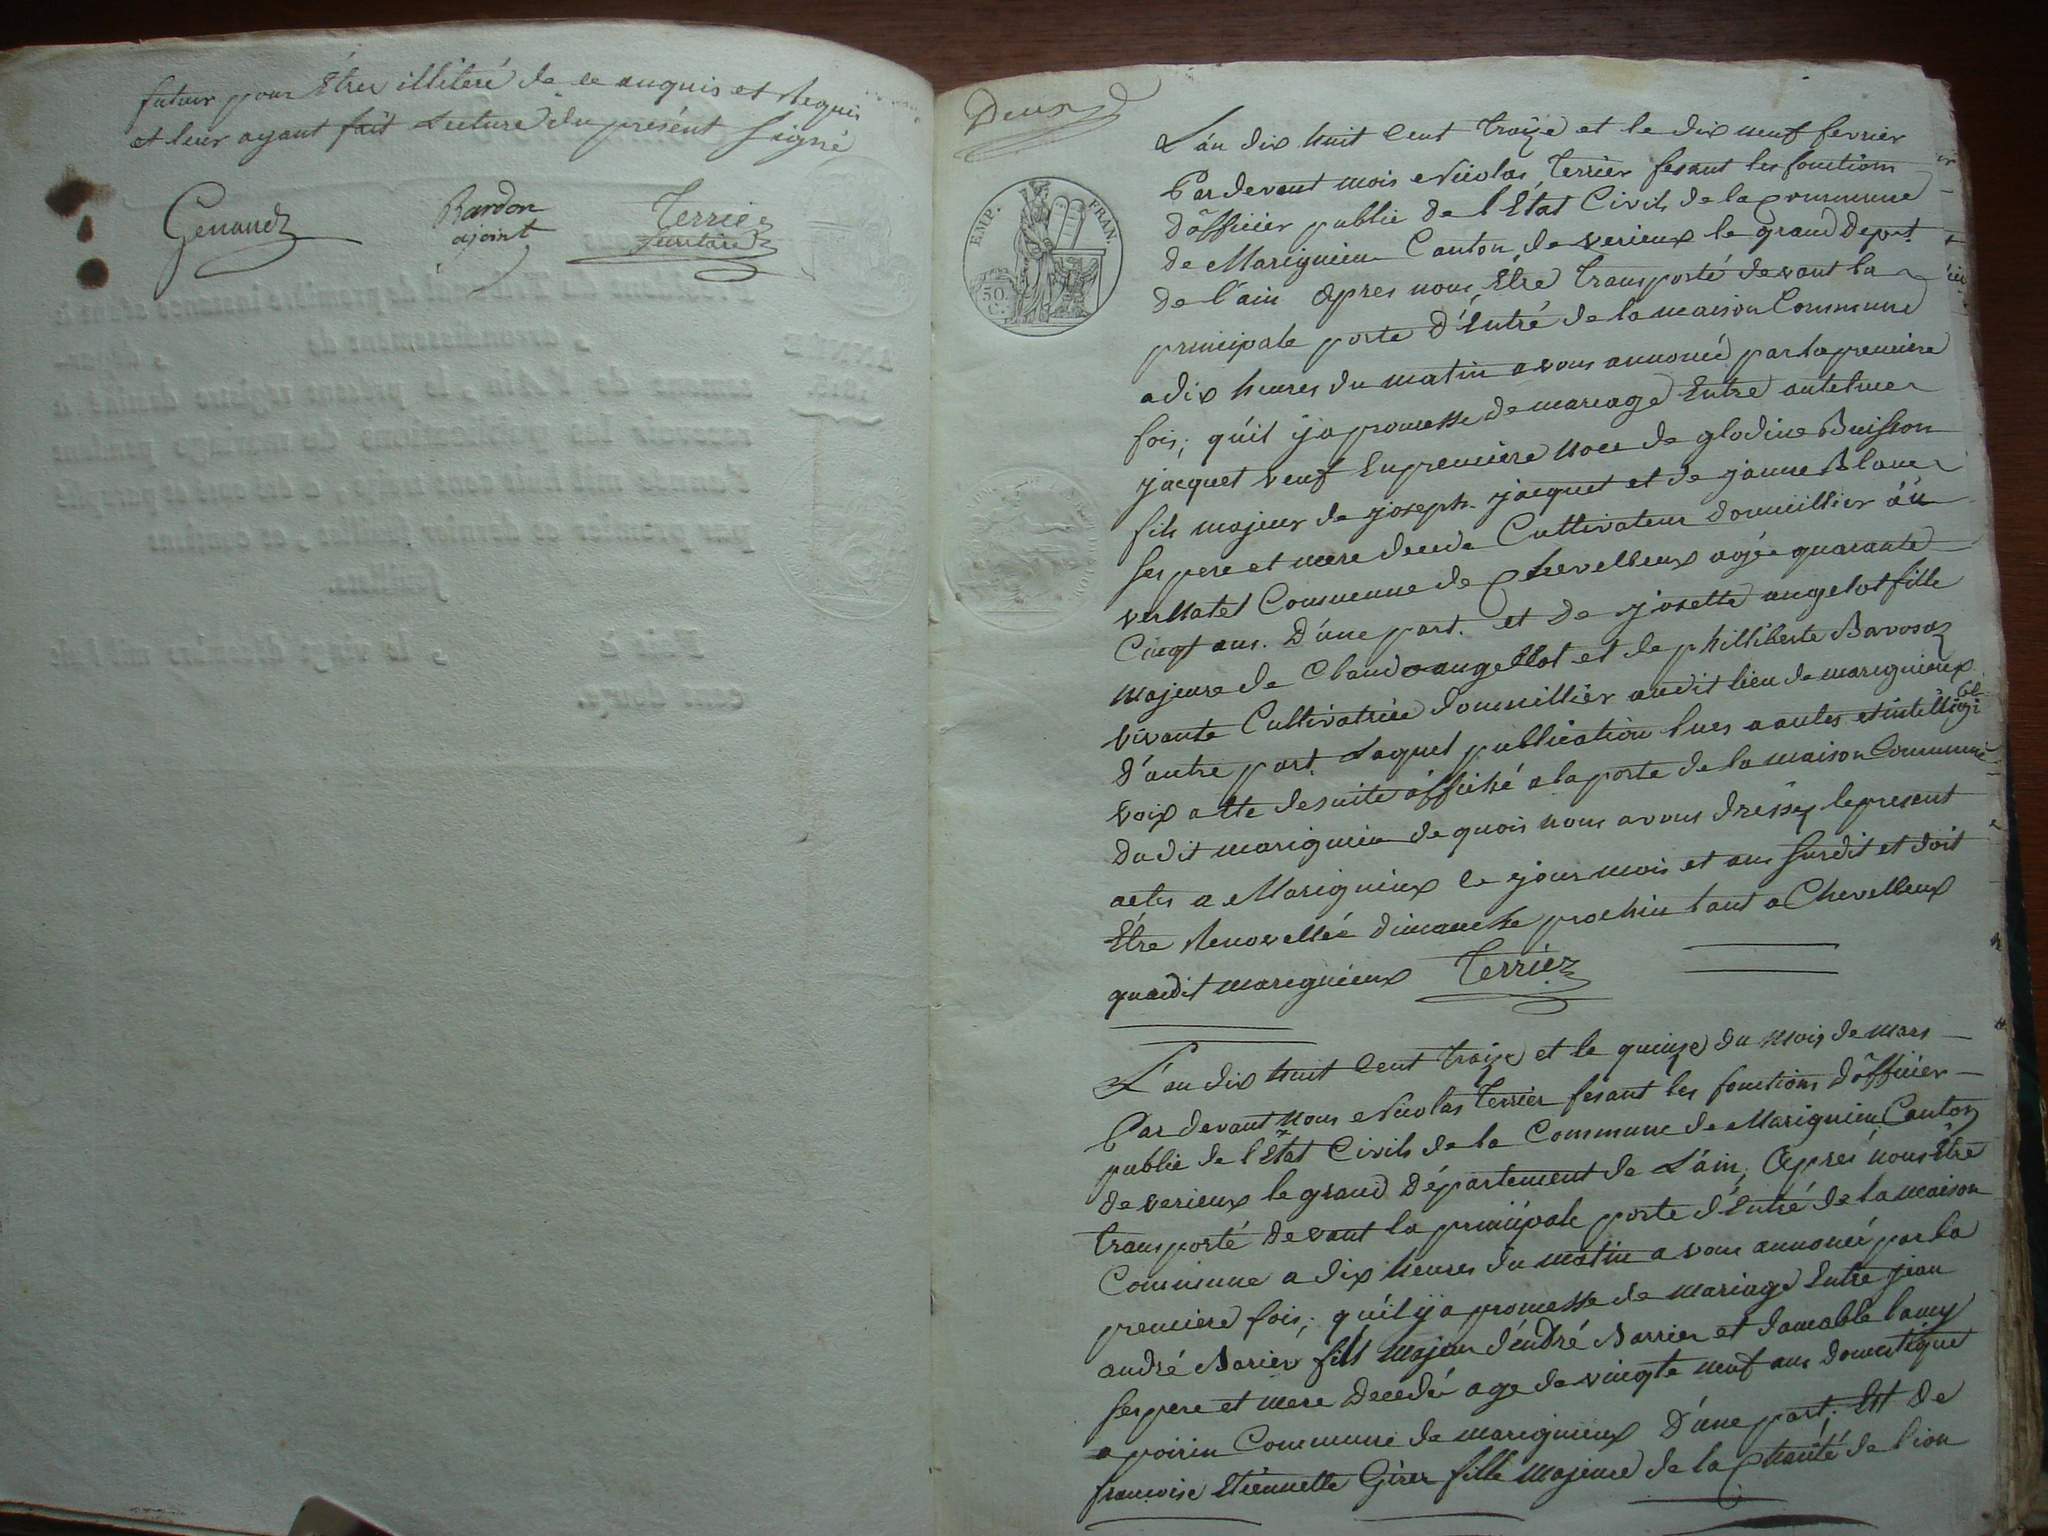 futeur pour Être illiteré de ce anquis et Requis
et leur ayant fait Lecture du present signé
Genaudz
Bardon
ajoint
Terrier
secretaire
Deux
EMP. FRAN.
50
C.
L'an dix huit Cent treize et le dix neuf fevrier
Pardevant mois Nicolas Terrier fesant les fonctions
d'officier public de l'Etat Civils de la Commune
de Marignieu Canton de verieux le grand Depart.
de l'ain Apres nous Être transporté devant la
principale porte d'Entré de la maison Commune
a dix heures du matin avons annoncé par la premiere
fois; qu'il y a promesse de mareage Entre antelme
jacquet veuf En premiere noce de glodine Buisson
fils majeur de joseph jacquet et de janne Blanc
ses pere et mere decede Cultivateur domicillier au
Commune de Chevelleux agée quarante
Cinqt ans. D'une part. et de josette angelot fille
majeure de Claude angellot et de philliberte Bavosaz
vivante Cultivatrice domicillier audit lieu de marignieux
d'autre part. Laquel publication lues a autes et intelligi
ble
voix a tte desuite affiché a la porte de la maison Commune
Dudit marignieu de quois nous avons dressez le present
actes a Marignieux le jour mois et ans surdit et doit
Être Renovellée dimanche prochin tant a Chevelleux
quaudit marignieux Terrier
L'an dix huit Cent treize et le quinze du mois de mars
Pardevant nous Nicolas Terrier fesant les fonctions d'officier
public de l'Etat Civils de la Commune de Marignieu Canton
de verieux le grand Département de L'ain; Après nous Être
transporté devant la principale porte d'Entré de la maison
Commune a dix heures du matin avons annoncé par la
premiere fois; qu'il y a promesse de mariage Entre jean
andré Barier fils majeur d'endré Barrier et damable lamy
ses pere et mere Decedée age de vingte neuf ans domestique
a poirin Commune de marignieux D'une part; Est de
francoise Etiennette Girer fille majeure de la Charité de lion